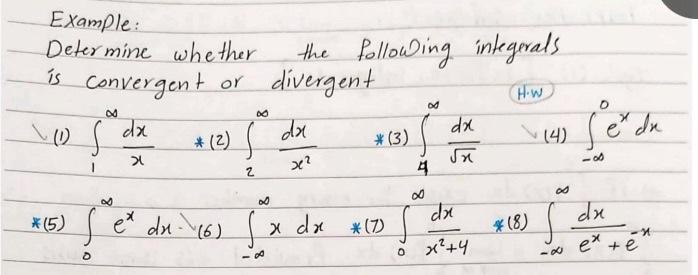 Example:
Determine whether the following integerals
is convergent or divergent
H.W
✓(1) ∫₁^∞ dx/x *(2) ∫₂^∞ dx/x² *(3) ∫₄^∞ dx/√x ✓(4) ∫₋∞^0 eˣ dx
*(5) ∫₀^∞ eˣ dx. ✓(6) ∫₋∞^∞ x dx *(7) ∫₀^∞ dx/(x²+4) *(8) ∫₋∞^∞ dx/(eˣ+e⁻ˣ)